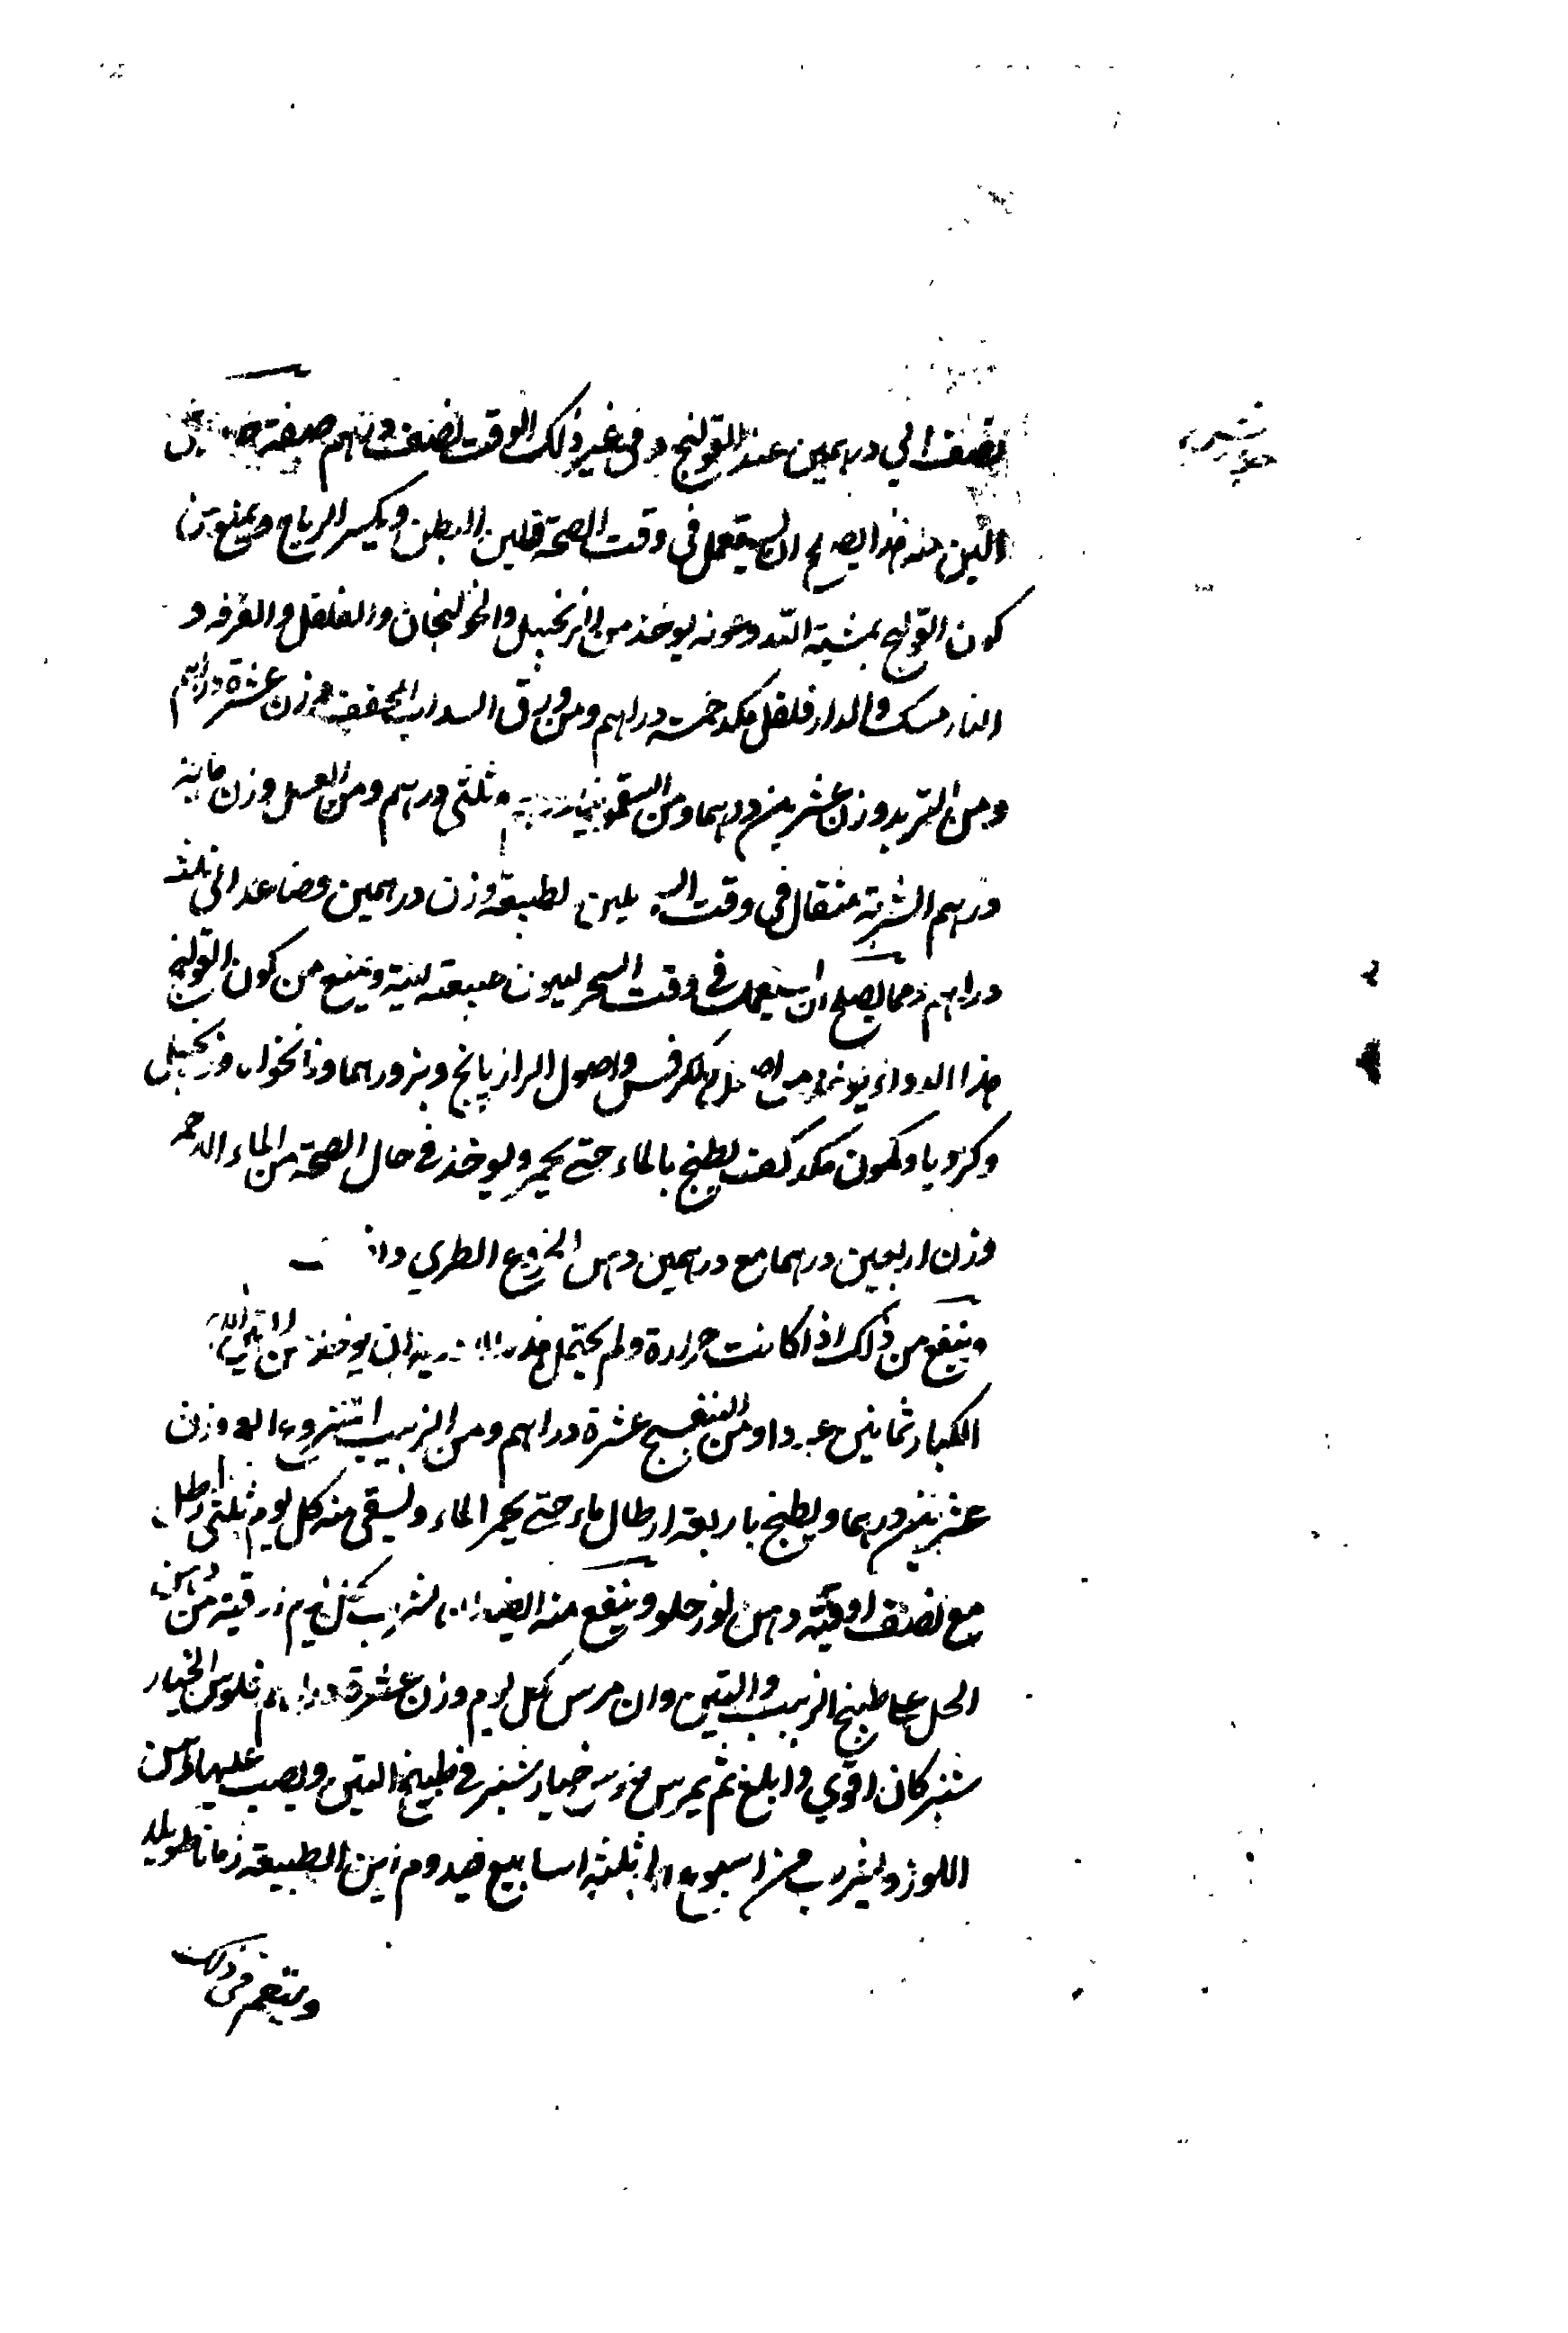 نصف الي درهمين عند القولنج و في غير ذلك الوقت نصف درهم صفة
الين منه هذا يصلح ان يستعمل في وقت الصحة فيلين البطن و يكسر الرياح و يمنع من
كون القولنج بمشية الله و عونه يوخذ من الزنجبيل و الخولنجان و الفلفل و القرفه و
النارمسك و الدارفلفل مكد خمسة دراهم و من ورق السداب المجفف وزن عشرة دراهم
و من التربد وزن عشرين درهما و من السقمونيا و ثلثي درهم و من العسل وزن ماية
درهم الشربة مثقال في وقت يلين لطبيعة وزن درهمين فصاعدا الي ثلثة
دراهم و مما يصلح ان يستعمل في وقت السحر ليكون طبيعته لينة و يمنع من كون القولنج
هذا الدواء يوخذ من اصل الكرفس و اصول الرازيانج و بزورهما و نانخواه و زنجبيل
و كرويا و كمون مكد كف يطبخ بالماء حتي يحمر و يوخذ في حال الصحة من الماء
وزن اربعين درهما مع درهمين دهن الخروع الطري
و ينفع من ذلك اذا كانت حرارة و لم يحتمل هذه ان يوخذ من التين
الكبار ثمانين عددا و من البنفسج عشرة دراهم و من الزبيب المنزوع العجم وزن
عشرين درهما و يطبخ باربعة ارطال ماء حتي يحمر الماء و يسقي منه كل يوم ثلثي رطل
مع نصف اوقية دهن لوز حلو و ينفع منه ايضا ان يشرب كل يوم اوقية من دهن
الحل علي طبيخ الزبيب و التين و ان مرس كل يوم وزن عشرة دراهم فلوس الخيار
شنبر كان اقوي و ابلغ ثم يمرس خيارشنبر في طبيخ التين و يصب عليها دهن
اللوز و يشرب من اسبوع الي ثلثة اسابيع فيدوم لين الطبيعة زمانا طويلا
و ينفع من ذلك